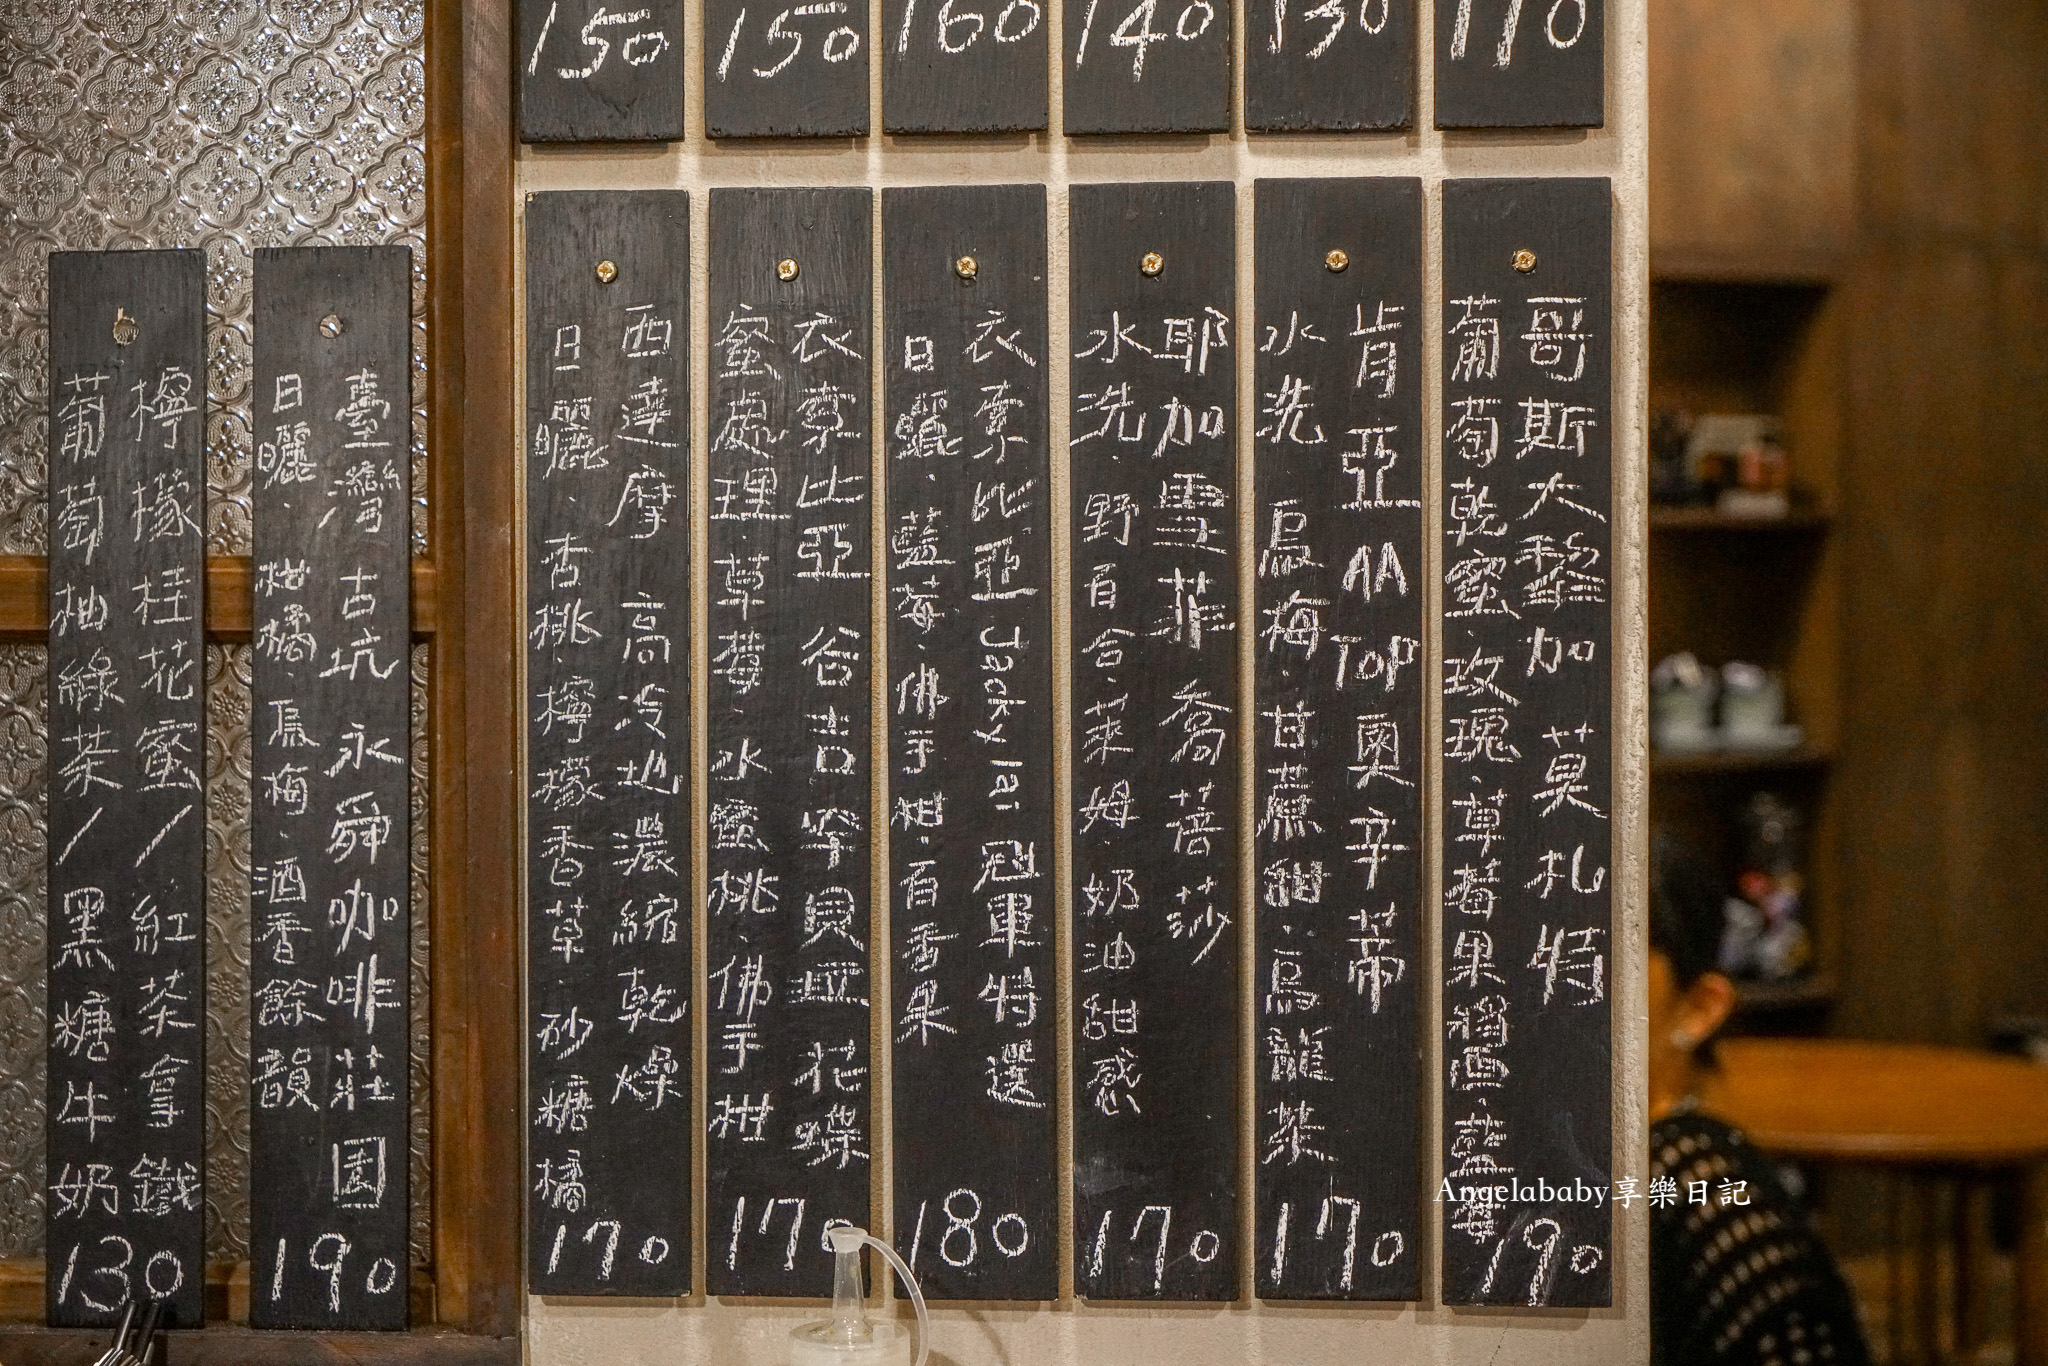 110
130
140
160
150
150
哥斯大黎加 莫札特
葡萄乾蜜.玫瑰.草莓果醬.藍莓
190
肯亞 AA TOP 奧辛蒂
水洗 烏梅.甘蔗甜.烏龍茶
170
耶加雪菲 喬蓓莎
水洗.野百合.萊姆.奶油甜感
170
衣索比亞 Jacky lai 冠軍特選
日曬.藍莓.佛手柑.百香果
180
衣索比亞 谷吉罕貝亞 花蝶
蜜處理.草莓.水蜜桃.佛手柑
170
西達摩 高冷地濃縮乾燥
日曬.杏桃.檸檬香草.砂糖橘
170
臺灣 古坑 永舜咖啡莊園
日曬.柑橘.烏梅.酒香餘韻
190
檸檬桂花蜜/紅茶拿鐵
葡萄柚綠茶/黑糖牛奶
130
Angelababy享樂日記